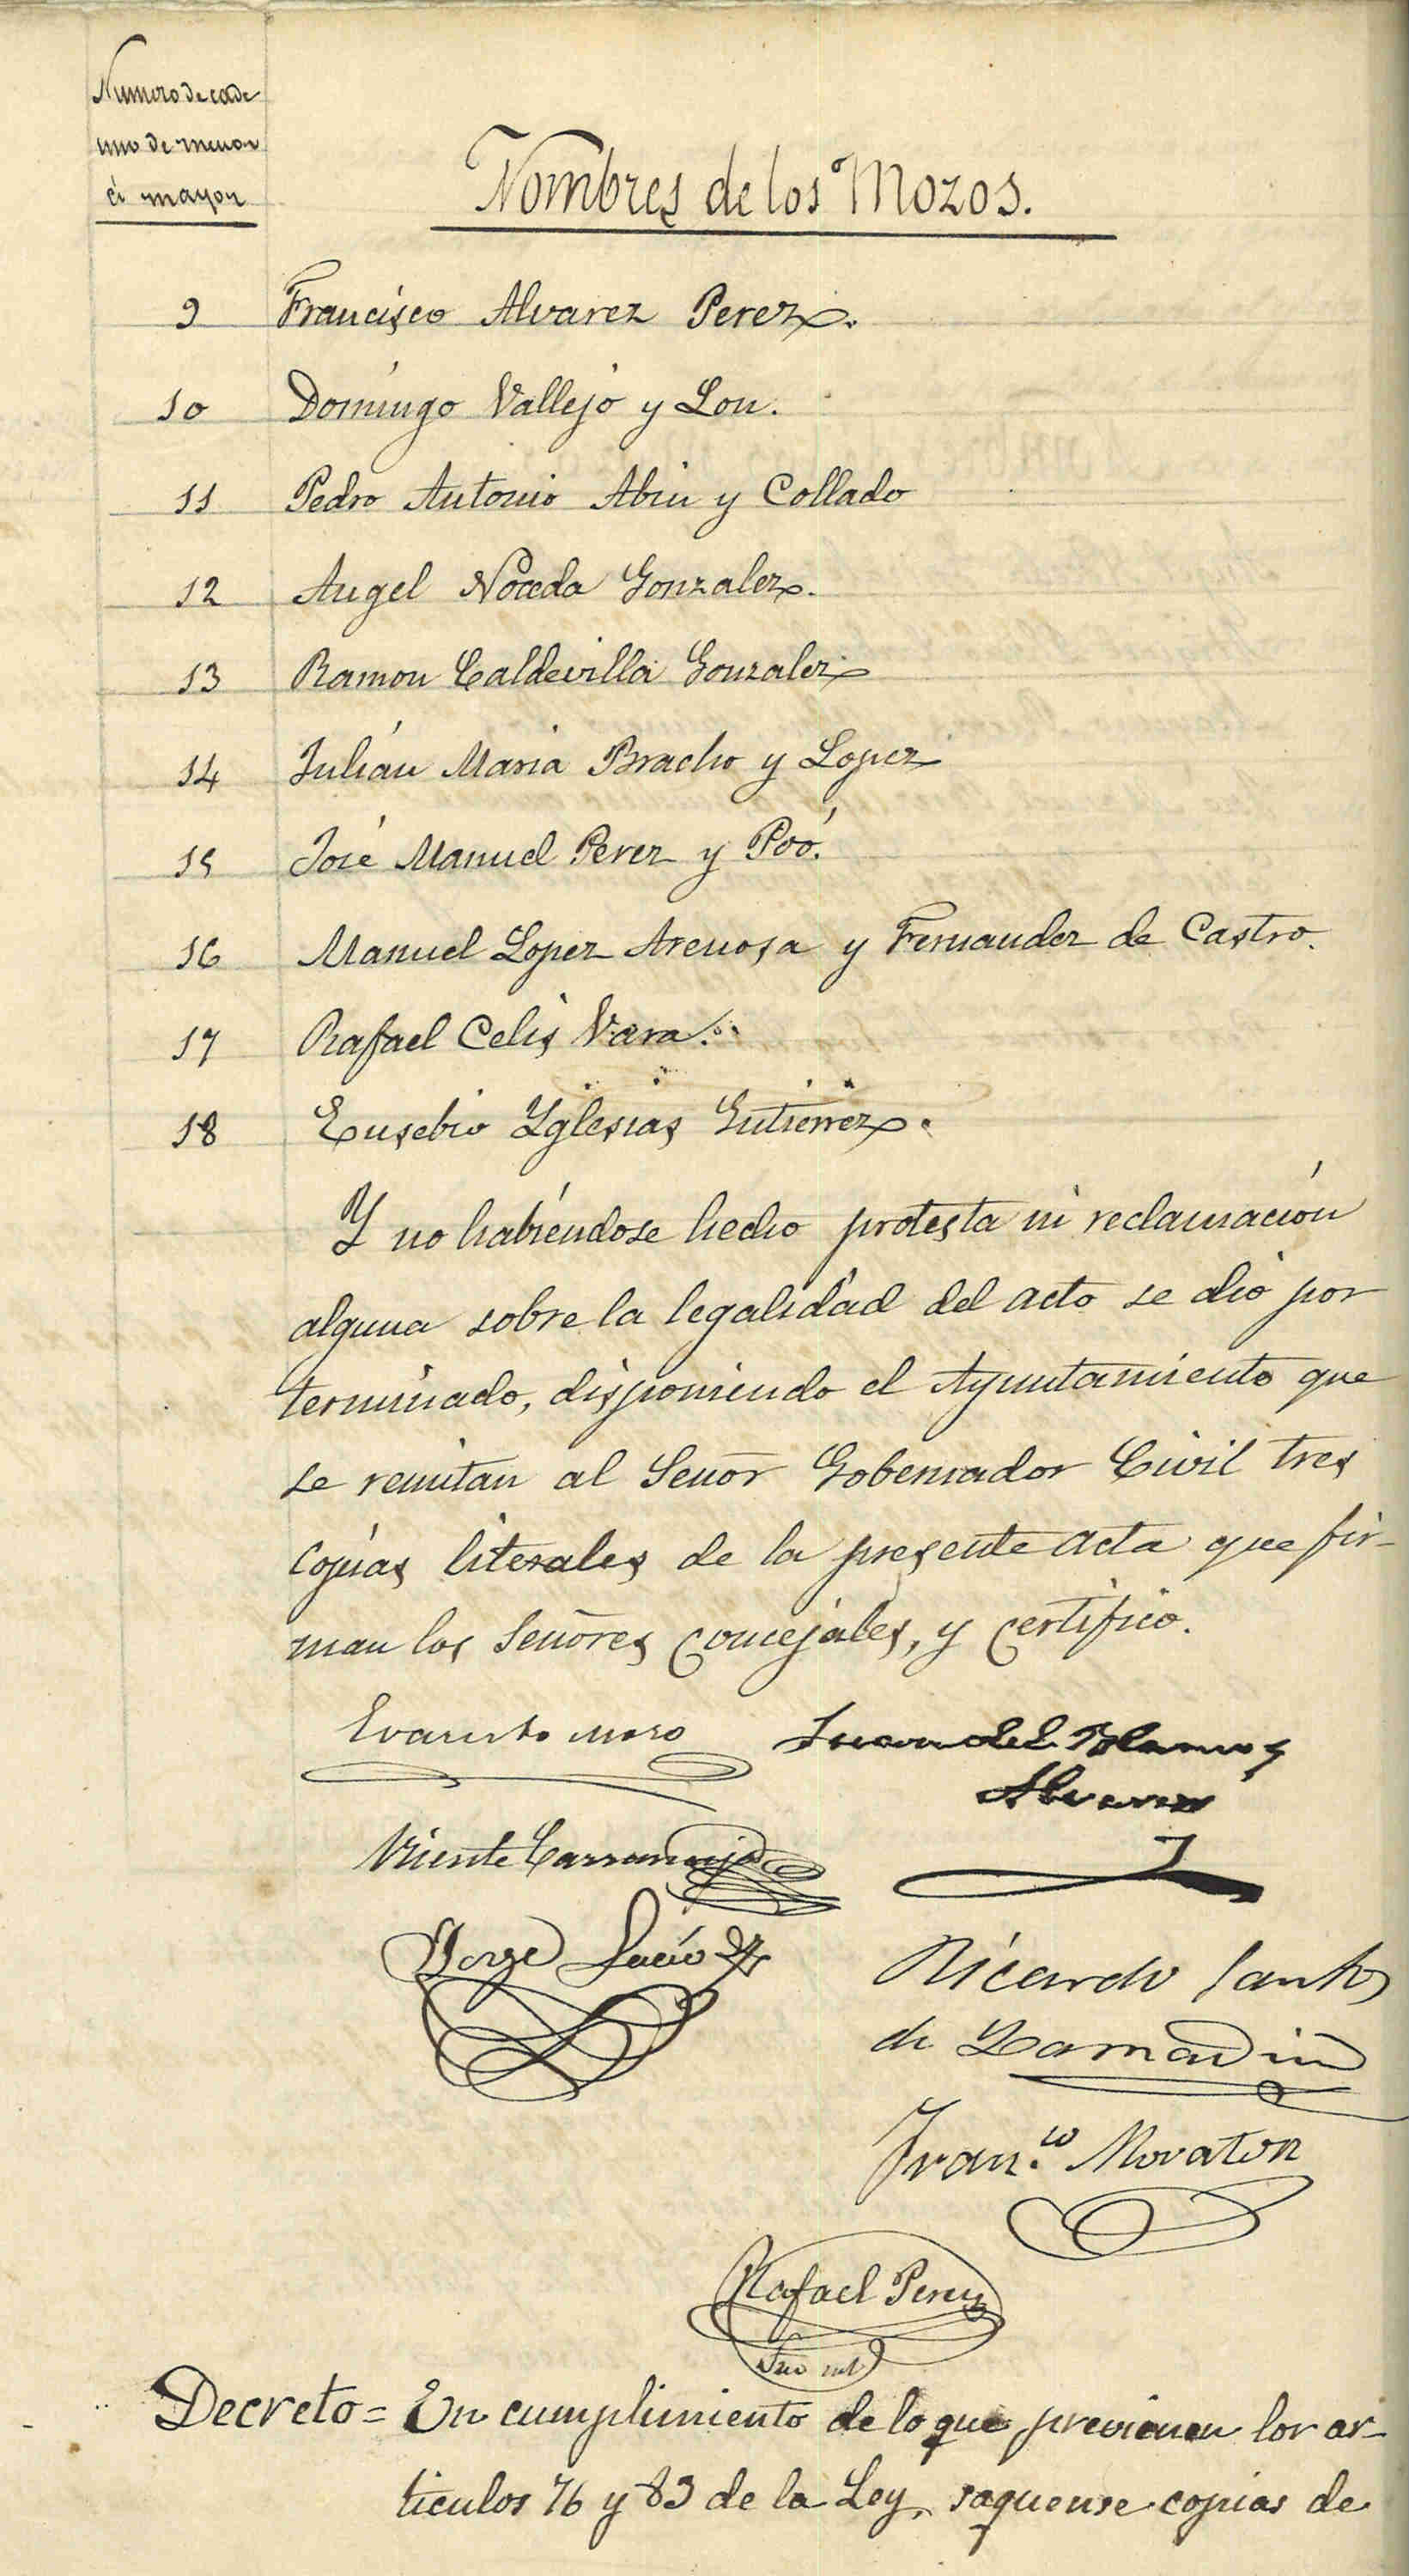 Numero de cada
uno de menor
á mayor
Nombres de los Mozos.
9 Francisco Alvarez Perez.
10 Domingo Vallejo y Lon.
11 Pedro Antonio Abin y Collado
12 Angel Noceda Gonzalez.
13 Ramon Caldevilla Gonzalez
14 Julián Maria Bracho y Lopez
15 José Manuel Perez y Poó.
16 Manuel Lopez Arenosa y Fernandez de Castro.
17 Rafael Celis Vara.
18 Eusebio Yglesias Gutierrez.
Y no habiéndose hecho protesta ni reclamación
alguna sobre la legalidad del acto se dió por
terminado, disponiendo el Ayuntamiento que
se remitan al Señor Gobernador Civil tres
copias literales de la presente acta que fir-
man los Señores Concejales, y certifico.
Evaristo Moro
Juan del Alamo y
Alvarez
Vicente Carrandi
Jorge Lucio
Ricardo Santos
de Lamadrid
Fran.co Moraton
Rafael Perez
Decreto = En cumplimiento de lo que previenen los ar-
ticulos 76 y 83 de la Ley, saquense copias de